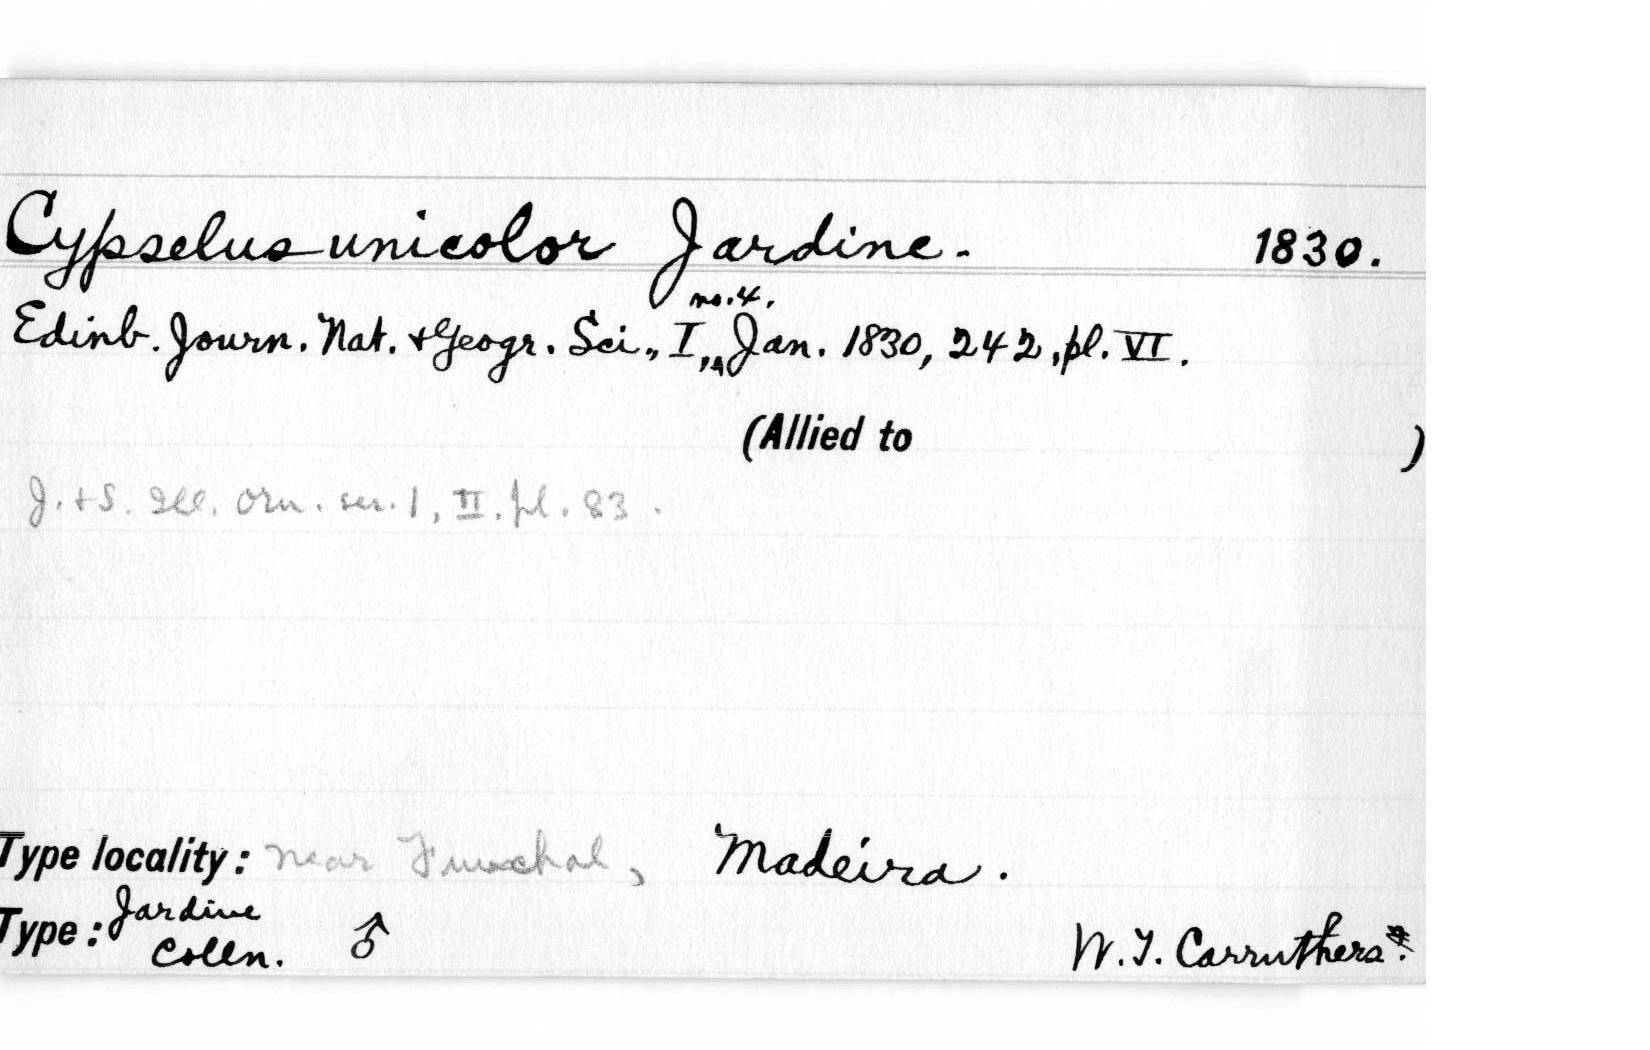 Cypselus unicolor Jardine. 1830.
Edinb. Journ. Nat. + Geogr. Sci., I, no. 4, Jan. 1830, 242, pl. VI.
(Allied to )
J. + S. Ill. Orn. ser. 1, II. pl. 83.
Type locality: near Funchal, Madeira.
Type: Jardine Colln. ♂ W. T. Carruthers.